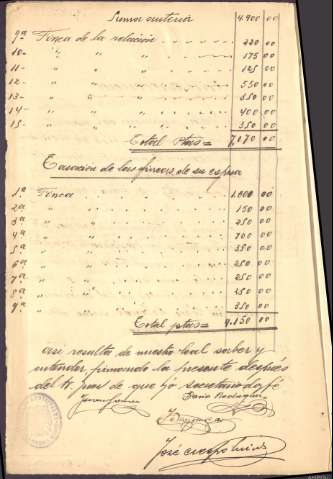 Suma anterior 4.900 00
9ª Finca de la relación 220 00
10 " " " 175 00
11 " " " 125 00
12 " " " 550 00
13 " " " 550 00
14 " " " 400 00
15 " " " 350 00
Total ptas = 7.170 00
Tasación de las fincas de su esposa
1ª Finca 1.000 00
2ª " 150 00
3ª " 250 00
4ª " 700 00
5ª " 350 00
6ª " 250 00
7ª " 250 00
8ª " 00
9ª " 350 00
Total ptas = 00
así resulta de nuestro leal saber y
entender, firmando la presente después
del Sr. Juez de que yó secretario doy fé
José Crespo